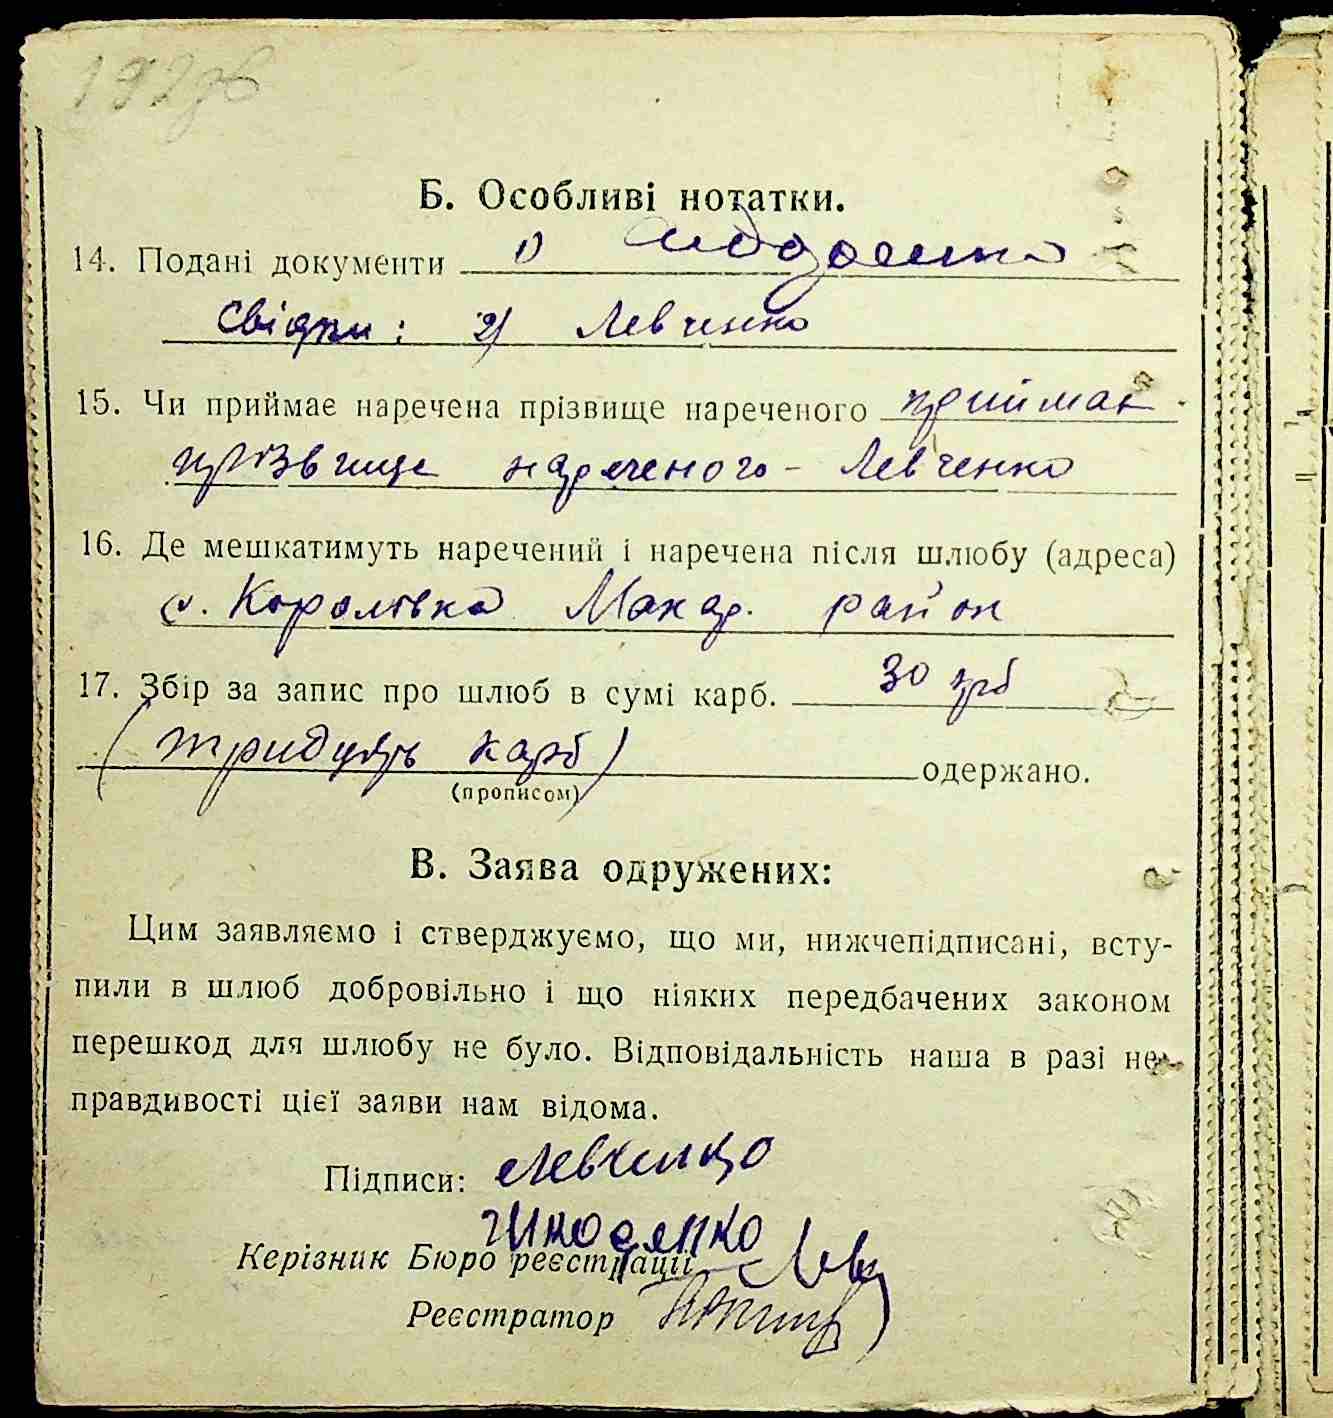 Б. Особливі нотатки.
14. Подані документи 1)
Свідки: 2) Левченко
15. Чи приймає наречена прізвище нареченого приймає
прізвище нареченого - Левченко
16. Де мешкатимуть наречений і наречена після шлюбу (адреса)
с. Королівка Макар. район
17. Збір за запис про шлюб в сумі карб. 30 крб
(тридцять карб) одержано.
(прописом)
В. Заява одружених:
Цим заявляємо і стверджуємо, що ми, нижчепідписані, всту-
пили в шлюб добровільно і що ніяких передбачених законом
перешкод для шлюбу не було. Відповідальність наша в разі не-
правдивості цієї заяви нам відома.
Підписи: Левченко
Керізник Бюро реєстрації
Реєстратор